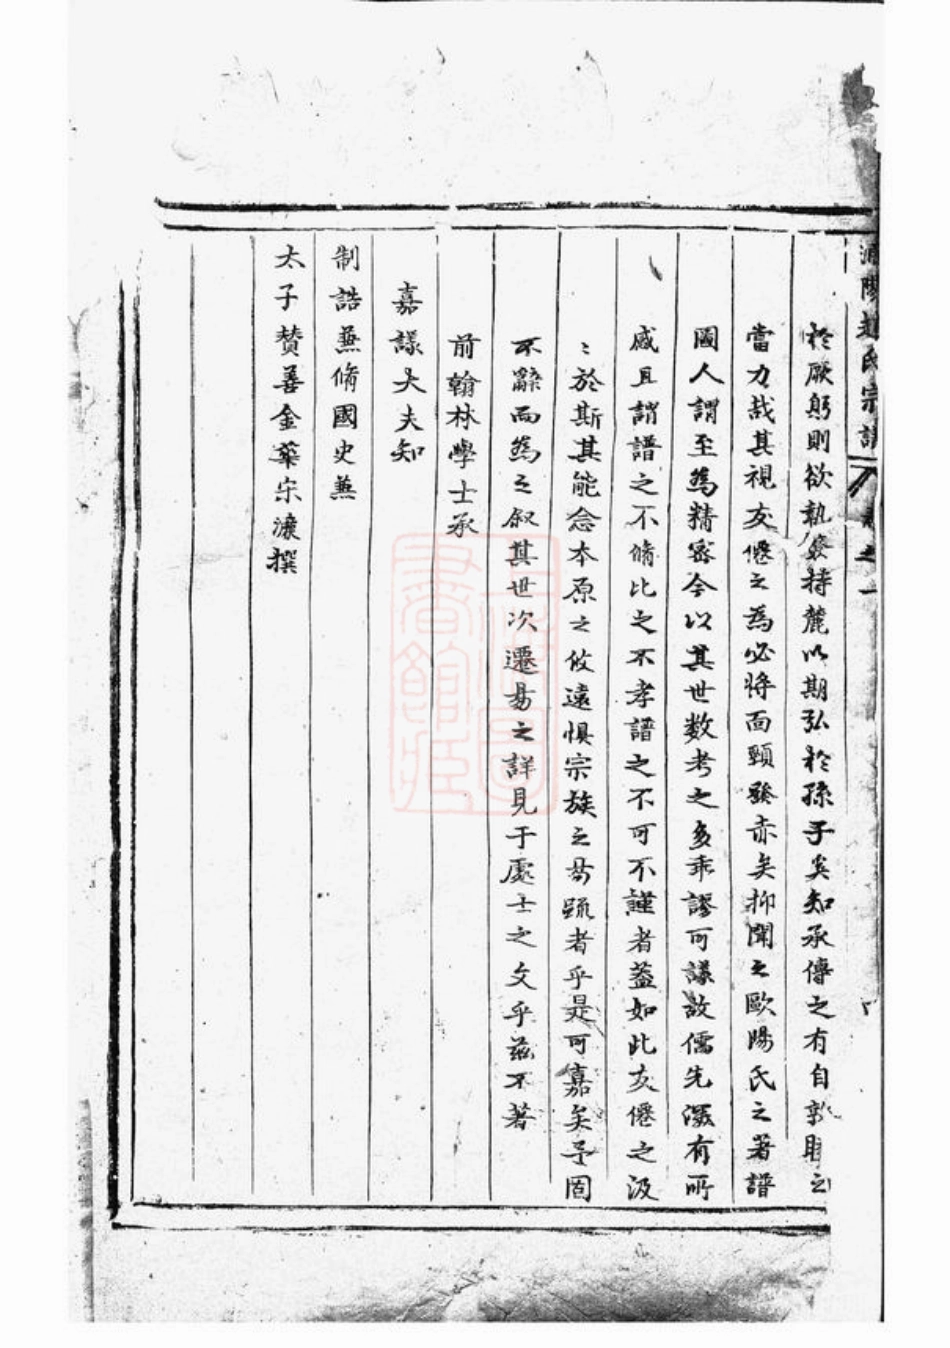 浦陽趙氏宗譜 卷之一
於厥躬則欲執 持麓以期弘於孫子奚知承傳之有自敦睦之
當力哉其視友僊之為必將面頸發赤矣抑聞之歐陽氏之著譜
國人謂至為精密今以其世數考之多乖謬可議故儒先深有所
感且謂譜之不脩比之不孝譜之不可不謹者蓋如此友僊之汲
〻於斯其能念本原之攸遠惧宗族之昜疏者乎是可嘉矣予固
不辭而為之叙其世次遷昜之詳見于處士之文乎茲不著
前翰林學士承
嘉議大夫知
制誥蕪脩國史蕪
太子賛善金華宋濂撰
上海圖書館藏